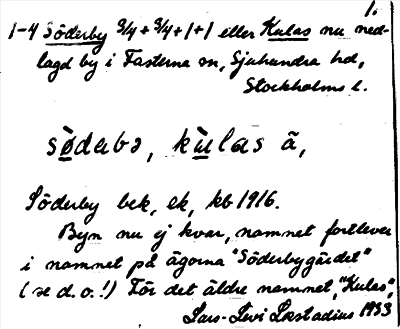 1.
1-4 Söderby 3/4 + 3/4 + 1 + 1 eller Kulas nu ned-
lagd by i Fasterna sn, Sjuhundra hd,
Stockholms l.
södebə, kùlas ä,
Söderby bek, ek, kb 1916.
Byn nu ej kvar, namnet fortlever
i namnet på ägorna "Söderbygärdet"
(se d. o.!) För det äldre namnet, "Kulas",
Lars-Levi Læstadius 1933